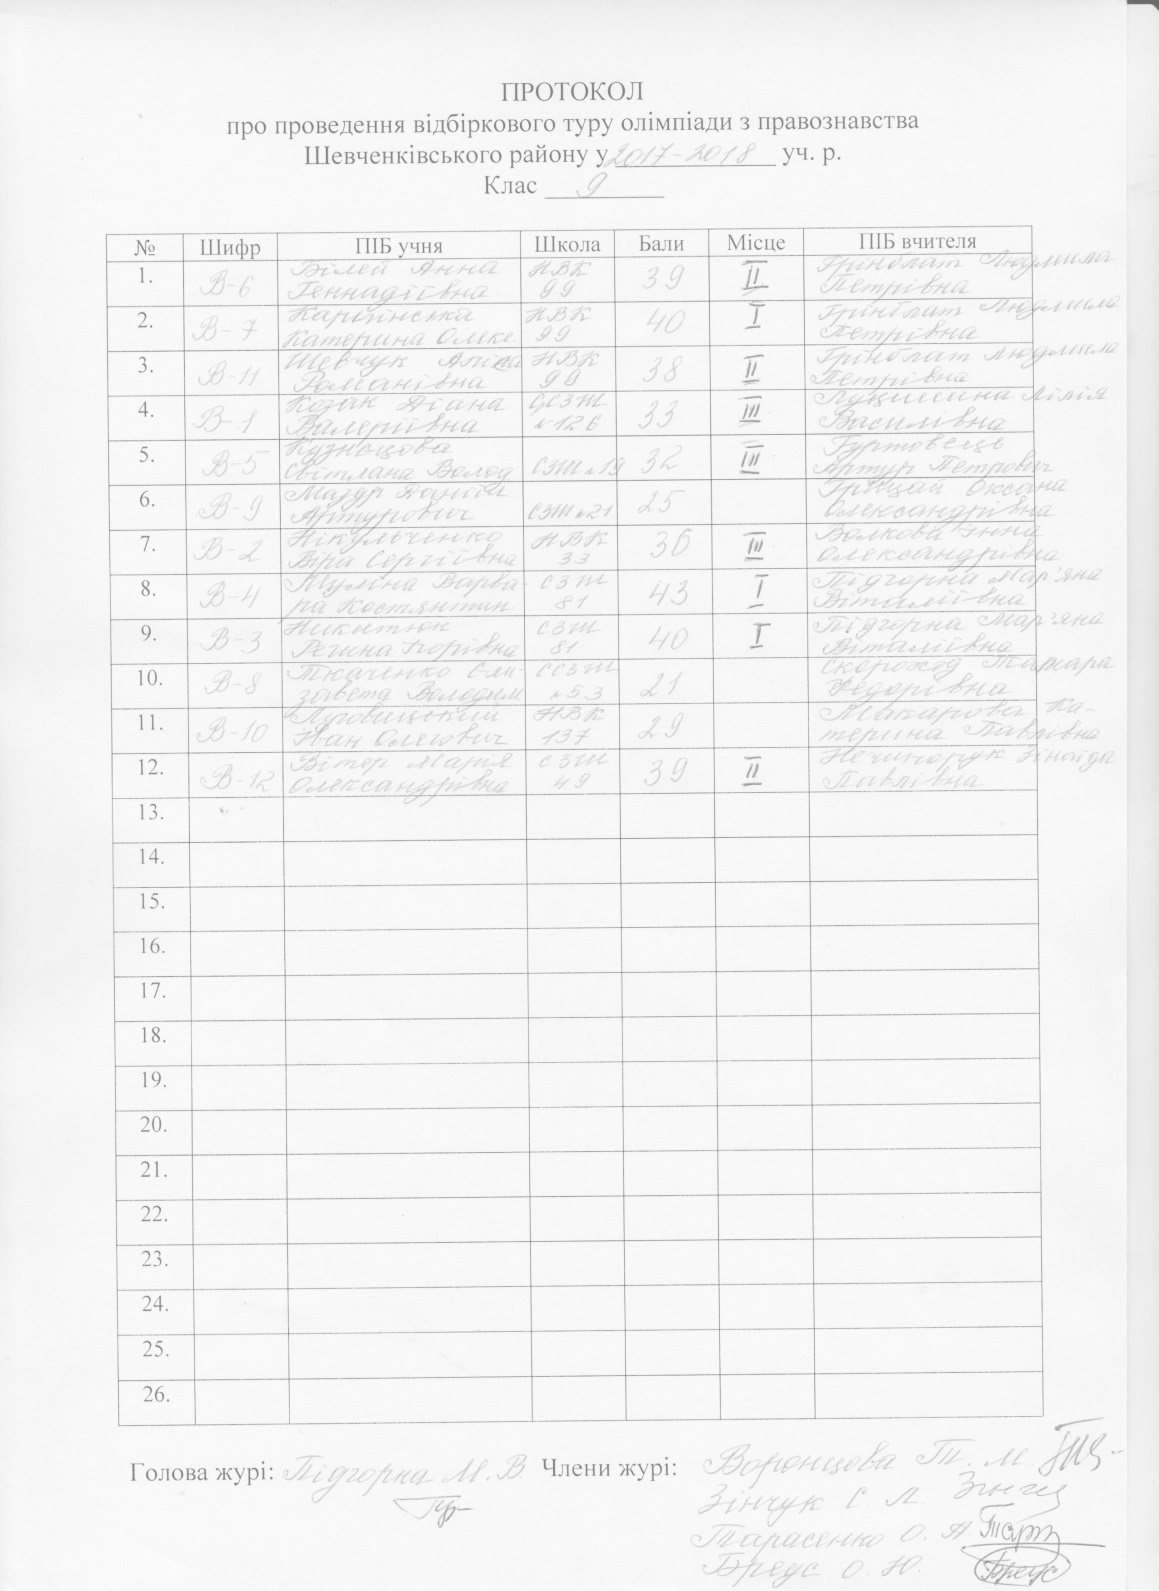 ПРОТОКОЛ
про проведення відбіркового туру олімпіади з правознавства
Шевченківського району у 2017-2018 уч. р.
Клас 9
№ Шифр ПІБ учня Школа Бали Місце ПІБ вчителя
1. В-6 Білей Анна Геннадіївна НВК 99 39 II Грінблат Людмила Петрівна
2. В-7 Катерина Олекс. НВК 99 40 I Грінблат Людмила Петрівна
3. В-11 Шевчук Аліса Романівна НВК 99 38 II Грінблат Людмила Петрівна
4. В-1 Козак Діана Валеріївна ССЗШ №126 33 III Лілія Василівна
5. В-5 Кузнєцова Світлана Волод СЗШ №19 32 III Артур Петрович
6. В-9 Мазур Артурович СЗШ №21 25 Грицай Оксана Олександрівна
7. В-2 Нікульченко Віра Сергіївна НВК 33 36 III Волкова Інна Олександрівна
8. В-4 Муліна Варвара Костянтин СЗШ 81 43 I Підгорна Мар'яна Віталіївна
9. В-3 Никитюк Регина Ігорівна СЗШ 81 40 I Підгорна Мар'яна Віталіївна
10. В-8 Ткаченко Єлизавета Володим ССЗШ №53 21 Скороход Тамара Федорівна
11. В-10 Іван Олегович НВК 137 29 Макарова Катерина Павлівна
12. В-12 Вітер Марія Олександрівна СЗШ 49 39 II Нечипорук Зінаїда Павлівна
13.
14.
15.
16.
17.
18.
19.
20.
21.
22.
23.
24.
25.
26.
Голова журі: Підгорна М. В. Члени журі: Воронцова Т. М.
Зінчук С. Л.
Тарасенко О. А.
Бреус О. Ю.